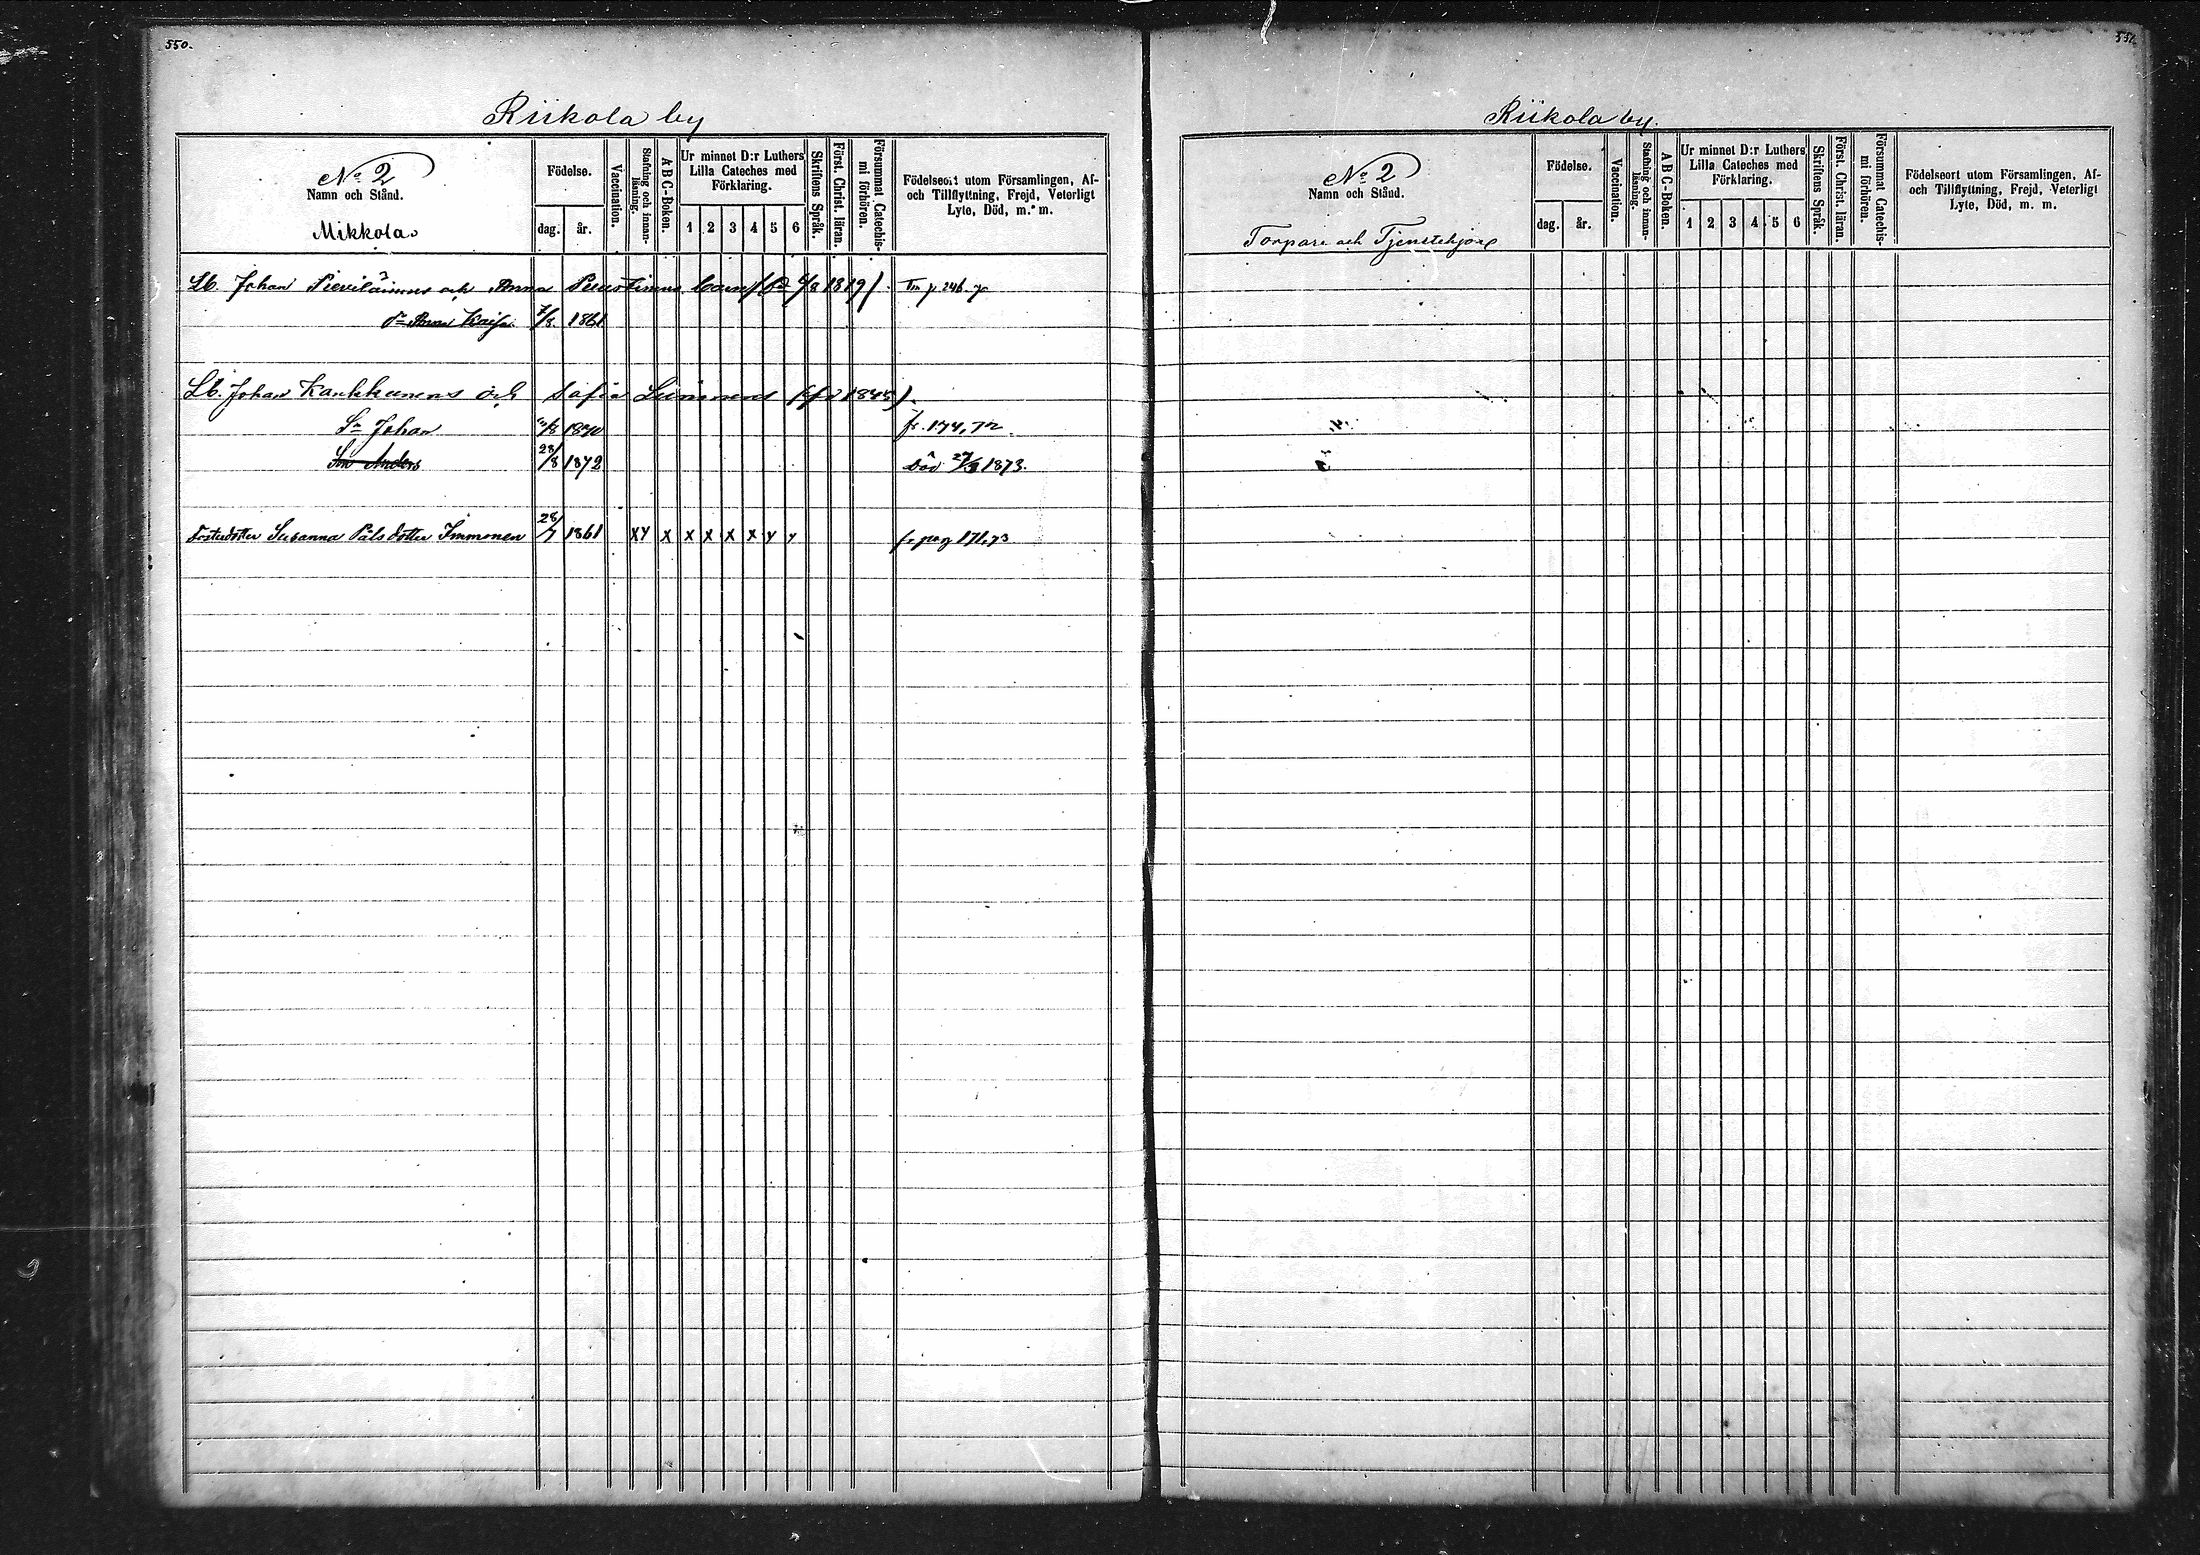 550.
Riikola by
No 2
Namn och Stånd.
Mikkola
Födelse.
dag.
år.
Vaccination.
Stafning och innanläsning.
A B C-Boken.
Ur minnet D:r Luthers
Lilla Cateches med
Förklaring.
1 2 3 4 5 6
Skriftens Språk.
Först. Christ. läran.
Försummat Catechismi förhören.
Födelseort utom Församlingen, Af-
och Tillflyttning, Frejd, Veterligt
Lyte, Död, m. m.
Lb. Johan och Anna barn 1819)
Dr Anna Kaisa 7/8 1861
Lb. Johan Kankkunens och Sofia (fd 1845).
Sn Johan 1870 fr. 174, 72
Son Anders 28/8 1872 Död 1873.
Fosterdotter Susanna Påls dotter Immonen 28/7 1861 x y x x x x x y y fr pag 171, 73
551.
Riikola by.
No 2
Namn och Stånd.
Torpare och Tjenstehjon
Födelse.
dag.
år.
Vaccination.
Stafning och innanläsning.
A B C-Boken.
Ur minnet D:r Luthers
Lilla Cateches med
Förklaring.
1 2 3 4 5 6
Skriftens Språk.
Först. Christ. läran.
Försummat Catechismi förhören.
Födelseort utom Församlingen, Af-
och Tillflyttning, Frejd, Veterligt
Lyte, Död, m. m.